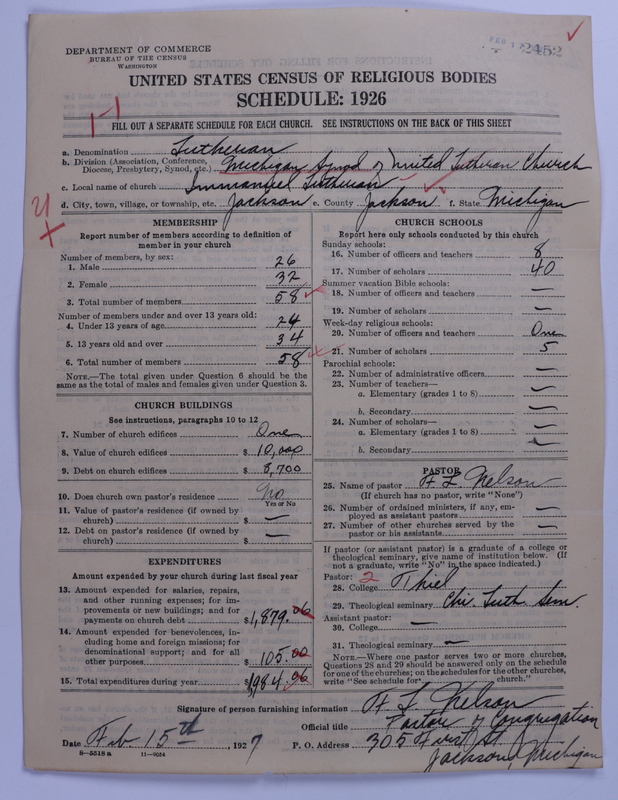 DEPARTMENT OF COMMERCE
BUREAU OF THE CENSUS
WASHINGTON
2452
UNITED STATES CENSUS OF RELIGIOUS BODIES
SCHEDULE: 1926
1-1
FILL OUT A SEPARATE SCHEDULE FOR EACH CHURCH. SEE INSTRUCTIONS ON THE BACK OF THIS SHEET
a. Denomination Lutheran
b. Division (Association, Conference, Diocese, Presbytery, Synod, etc.) Michigan Synod of United Lutheran Church
c. Local name of church Immanuel Lutheran
d. City, town, village, or township, etc. Jackson e. County Jackson f. State Michigan
MEMBERSHIP
Report number of members according to definition of
member in your church
Number of members, by sex:
1. Male 26
2. Female 32
3. Total number of members 58
Number of members under and over 13 years old:
4. Under 13 years of age 24
5. 13 years old and over 34
6. Total number of members 58
NOTE.—The total given under Question 6 should be the
same as the total of males and females given under Question 3.
CHURCH BUILDINGS
See instructions, paragraphs 10 to 12
7. Number of church edifices One
8. Value of church edifices $ 10,000
9. Debt on church edifices $ 8,700
10. Does church own pastor's residence No
Yes or No
11. Value of pastor's residence (if owned by
church) $ —
12. Debt on pastor's residence (if owned by
church) $ —
EXPENDITURES
Amount expended by your church during last fiscal year
13. Amount expended for salaries, repairs,
and other running expenses; for im-
provements or new buildings; and for
payments on church debt $ 1,879.06
14. Amount expended for benevolences, in-
cluding home and foreign missions; for
denominational support; and for all
other purposes $ 105.00
15. Total expenditures during year $ 1984.06
CHURCH SCHOOLS
Report here only schools conducted by this church
Sunday schools:
16. Number of officers and teachers 8
17. Number of scholars 40
Summer vacation Bible schools:
18. Number of officers and teachers —
19. Number of scholars —
Week-day religious schools:
20. Number of officers and teachers One
21. Number of scholars 5
Parochial schools:
22. Number of administrative officers —
23. Number of teachers—
a. Elementary (grades 1 to 8) —
b. Secondary —
24. Number of scholars—
a. Elementary (grades 1 to 8) —
b. Secondary —
PASTOR
25. Name of pastor H L Nelson
(If church has no pastor, write "None")
26. Number of ordained ministers, if any, em-
ployed as assistant pastors —
27. Number of other churches served by the
pastor or his assistants —
If pastor (or assistant pastor) is a graduate of a college or
theological seminary, give name of institution below. (If
not a graduate, write "No" in the space indicated.)
Pastor: 2
28. College Thiel
29. Theological seminary Chi. Luth. Sem.
Assistant pastor:
30. College —
31. Theological seminary —
NOTE.—Where one pastor serves two or more churches,
Questions 28 and 29 should be answered only on the schedule
for one of the churches; on the schedules for the other churches,
write "See schedule for church."
Signature of person furnishing information H L Nelson
Official title Pastor of Congregation
Date Feb. 15th, 1927 P. O. Address 305 First St.
Jackson, Michigan
8—5518 a 11—9054